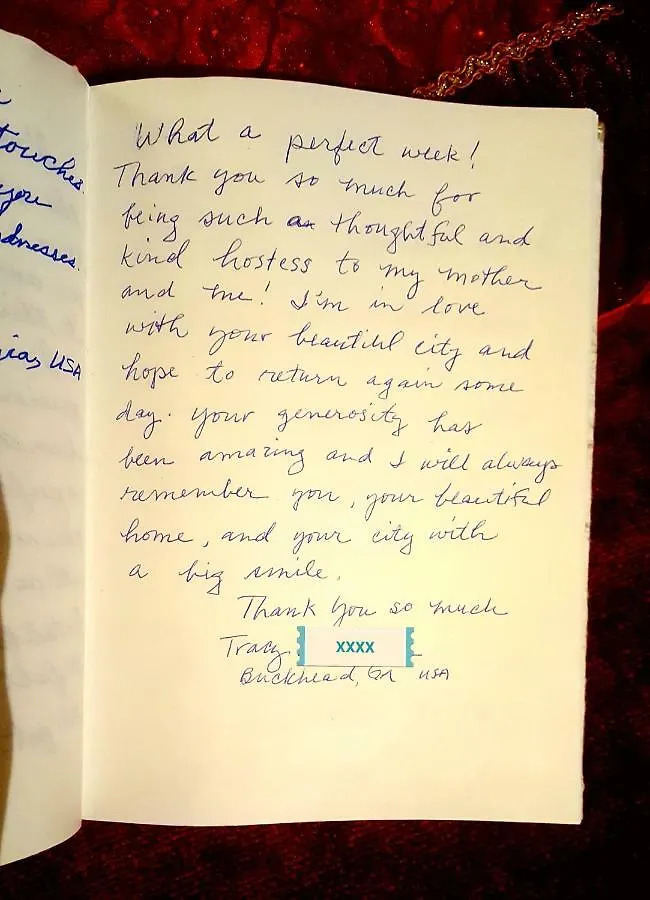 touches.
you
USA
What a perfect week!
Thank you so much for
being such a thoughtful and
kind hostess to my mother
and me! I'm in love
with your beautiful city and
hope to return again some
day. Your generosity has
been amazing and I will always
remember you, your beautiful
home, and your city with
a big smile.
Thank you so much
Tracy. XXXX
Buckhead, GA USA